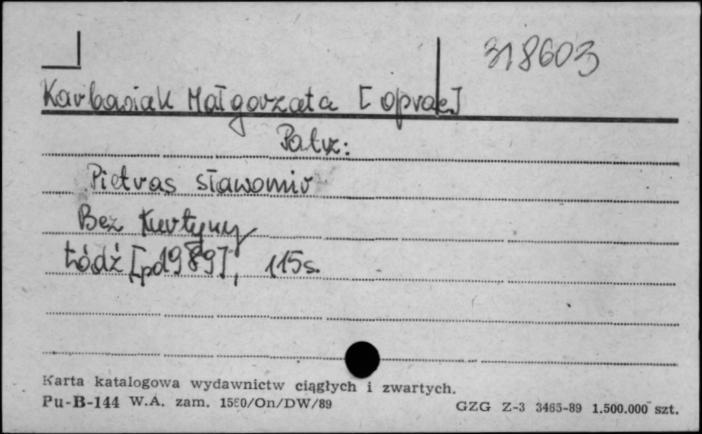 318603
Karbasiak Małgorzata [oprac]
Patrz:
Pietras Sławomir
Bez kurtyny
Łódź [pd 1989], 115 s.
Karta katalogowa wydawnictw ciągłych i zwartych.
Pu-B-144 W.A. zam. 1580/On/DW/89
GZG Z-3 3465-89 1.500.000 szt.